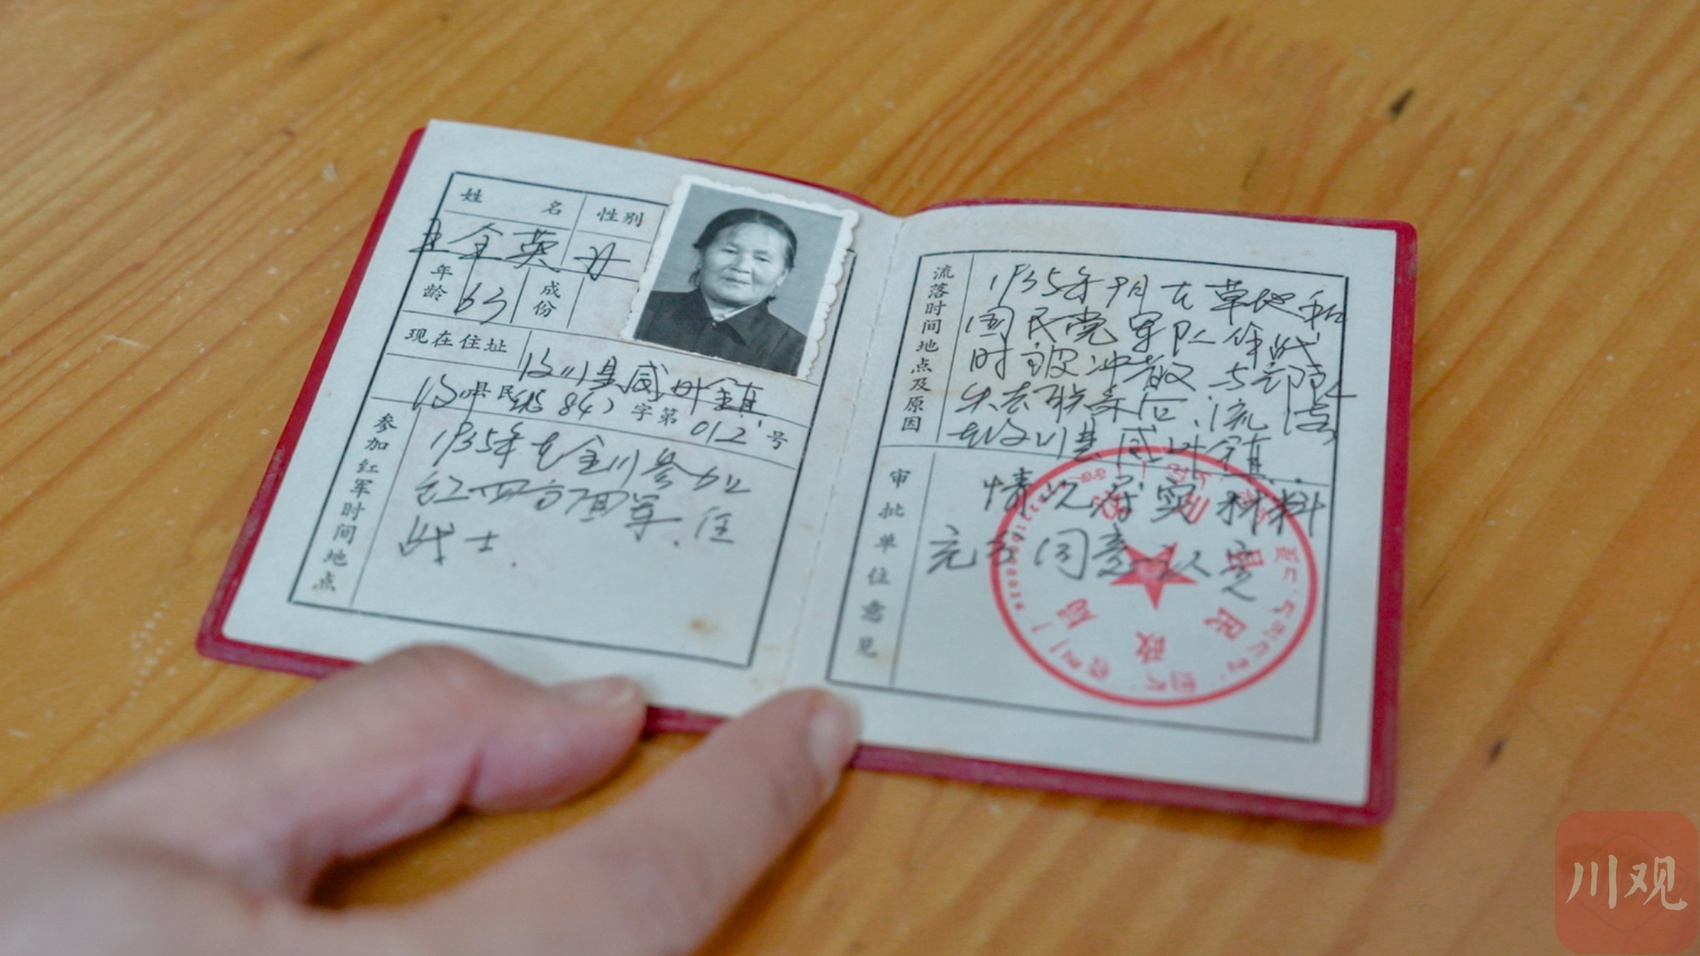 姓名 性别
王全英 女
年龄 63 成份
现在住址 汶川县威州镇
汶川县民(84)字第012号
参加红军时间地点
1935年在金川参加
红四方面军、任
战士.
流落时间地点及原因
1935年9月在草地和
国民党军队作战
时被冲散与部队
失去联系后、流落
在汶川县威州镇.
审批单位意见
情况属实材料
充分同意认定
民政局
川观